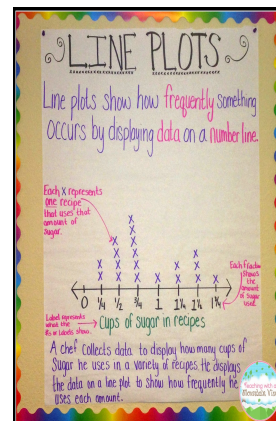 LINE PLOTS
Line plots show how frequently something
occurs by displaying data on a number line.
Each X represents
one recipe
that uses that
amount of
sugar.
X
X X
X X
X X X X
X X X X X X X
0 1/4 1/2 3/4 1 1 1/4 1 1/2 1 3/4
Each fraction
shows
the
amount
of sugar
used.
Label represents
what the
#s or labels show.
Cups of sugar in recipes
A chef collects data to display how many cups of
sugar he uses in a variety of recipes. He displays
the data on a line plot to show how frequently he
uses each amount.
Teaching with a
Mountain View